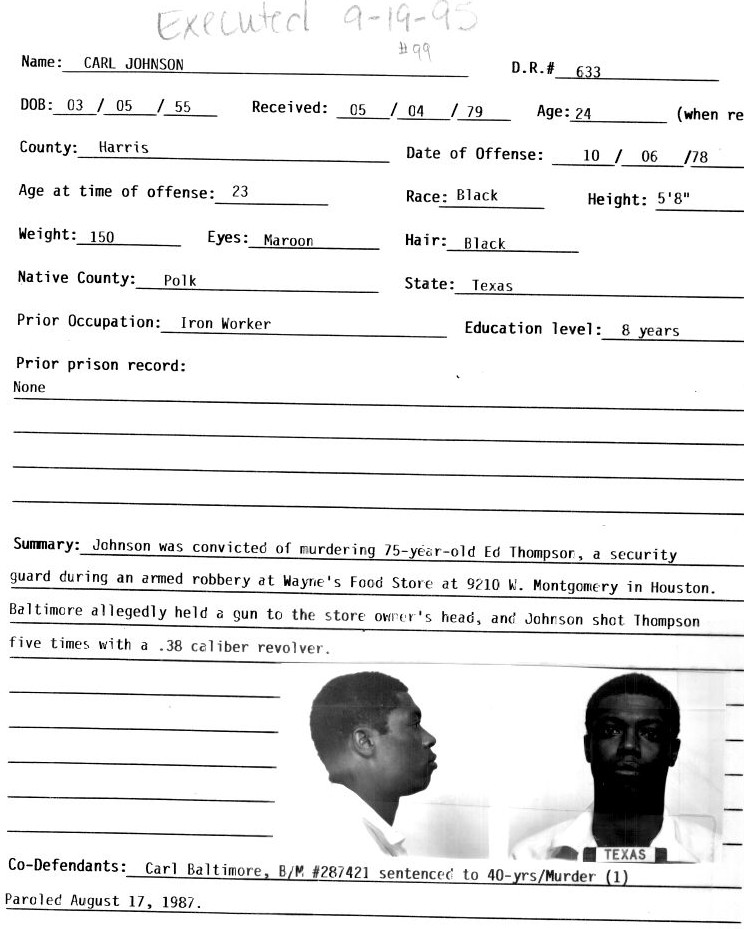 Executed 9-19-95
#99
Name: CARL JOHNSON D.R.# 633
DOB: 03 / 05 / 55 Received: 05 / 04 / 79 Age: 24 (when re
County: Harris Date of Offense: 10 / 06 /78
Age at time of offense: 23 Race: Black Height: 5'8"
Weight: 150 Eyes: Maroon Hair: Black
Native County: Polk State: Texas
Prior Occupation: Iron Worker Education level: 8 years
Prior prison record:
None
Summary: Johnson was convicted of murdering 75-year-old Ed Thompson, a security
guard during an armed robbery at Wayne's Food Store at 9210 W. Montgomery in Houston.
Baltimore allegedly held a gun to the store owner's head, and Johnson shot Thompson
five times with a .38 caliber revolver.
TEXAS
Co-Defendants: Carl Baltimore, B/M #287421 sentenced to 40-yrs/Murder (1)
Paroled August 17, 1987.